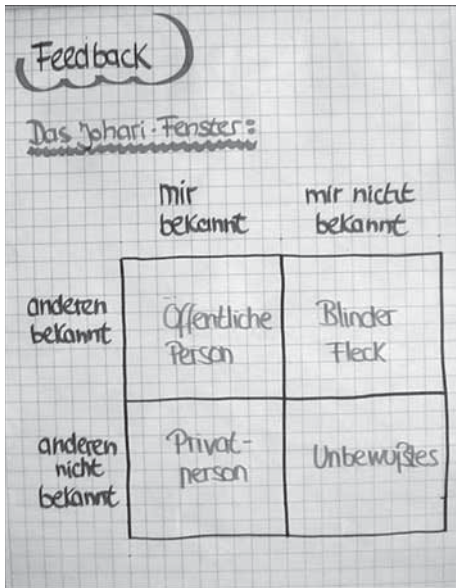 Feedback
Das Johari-Fenster:
mir
bekannt
mir nicht
bekannt
anderen
bekannt
Öffentliche
Person
Blinder
Fleck
anderen
nicht
bekannt
Privat-
person
Unbewußtes